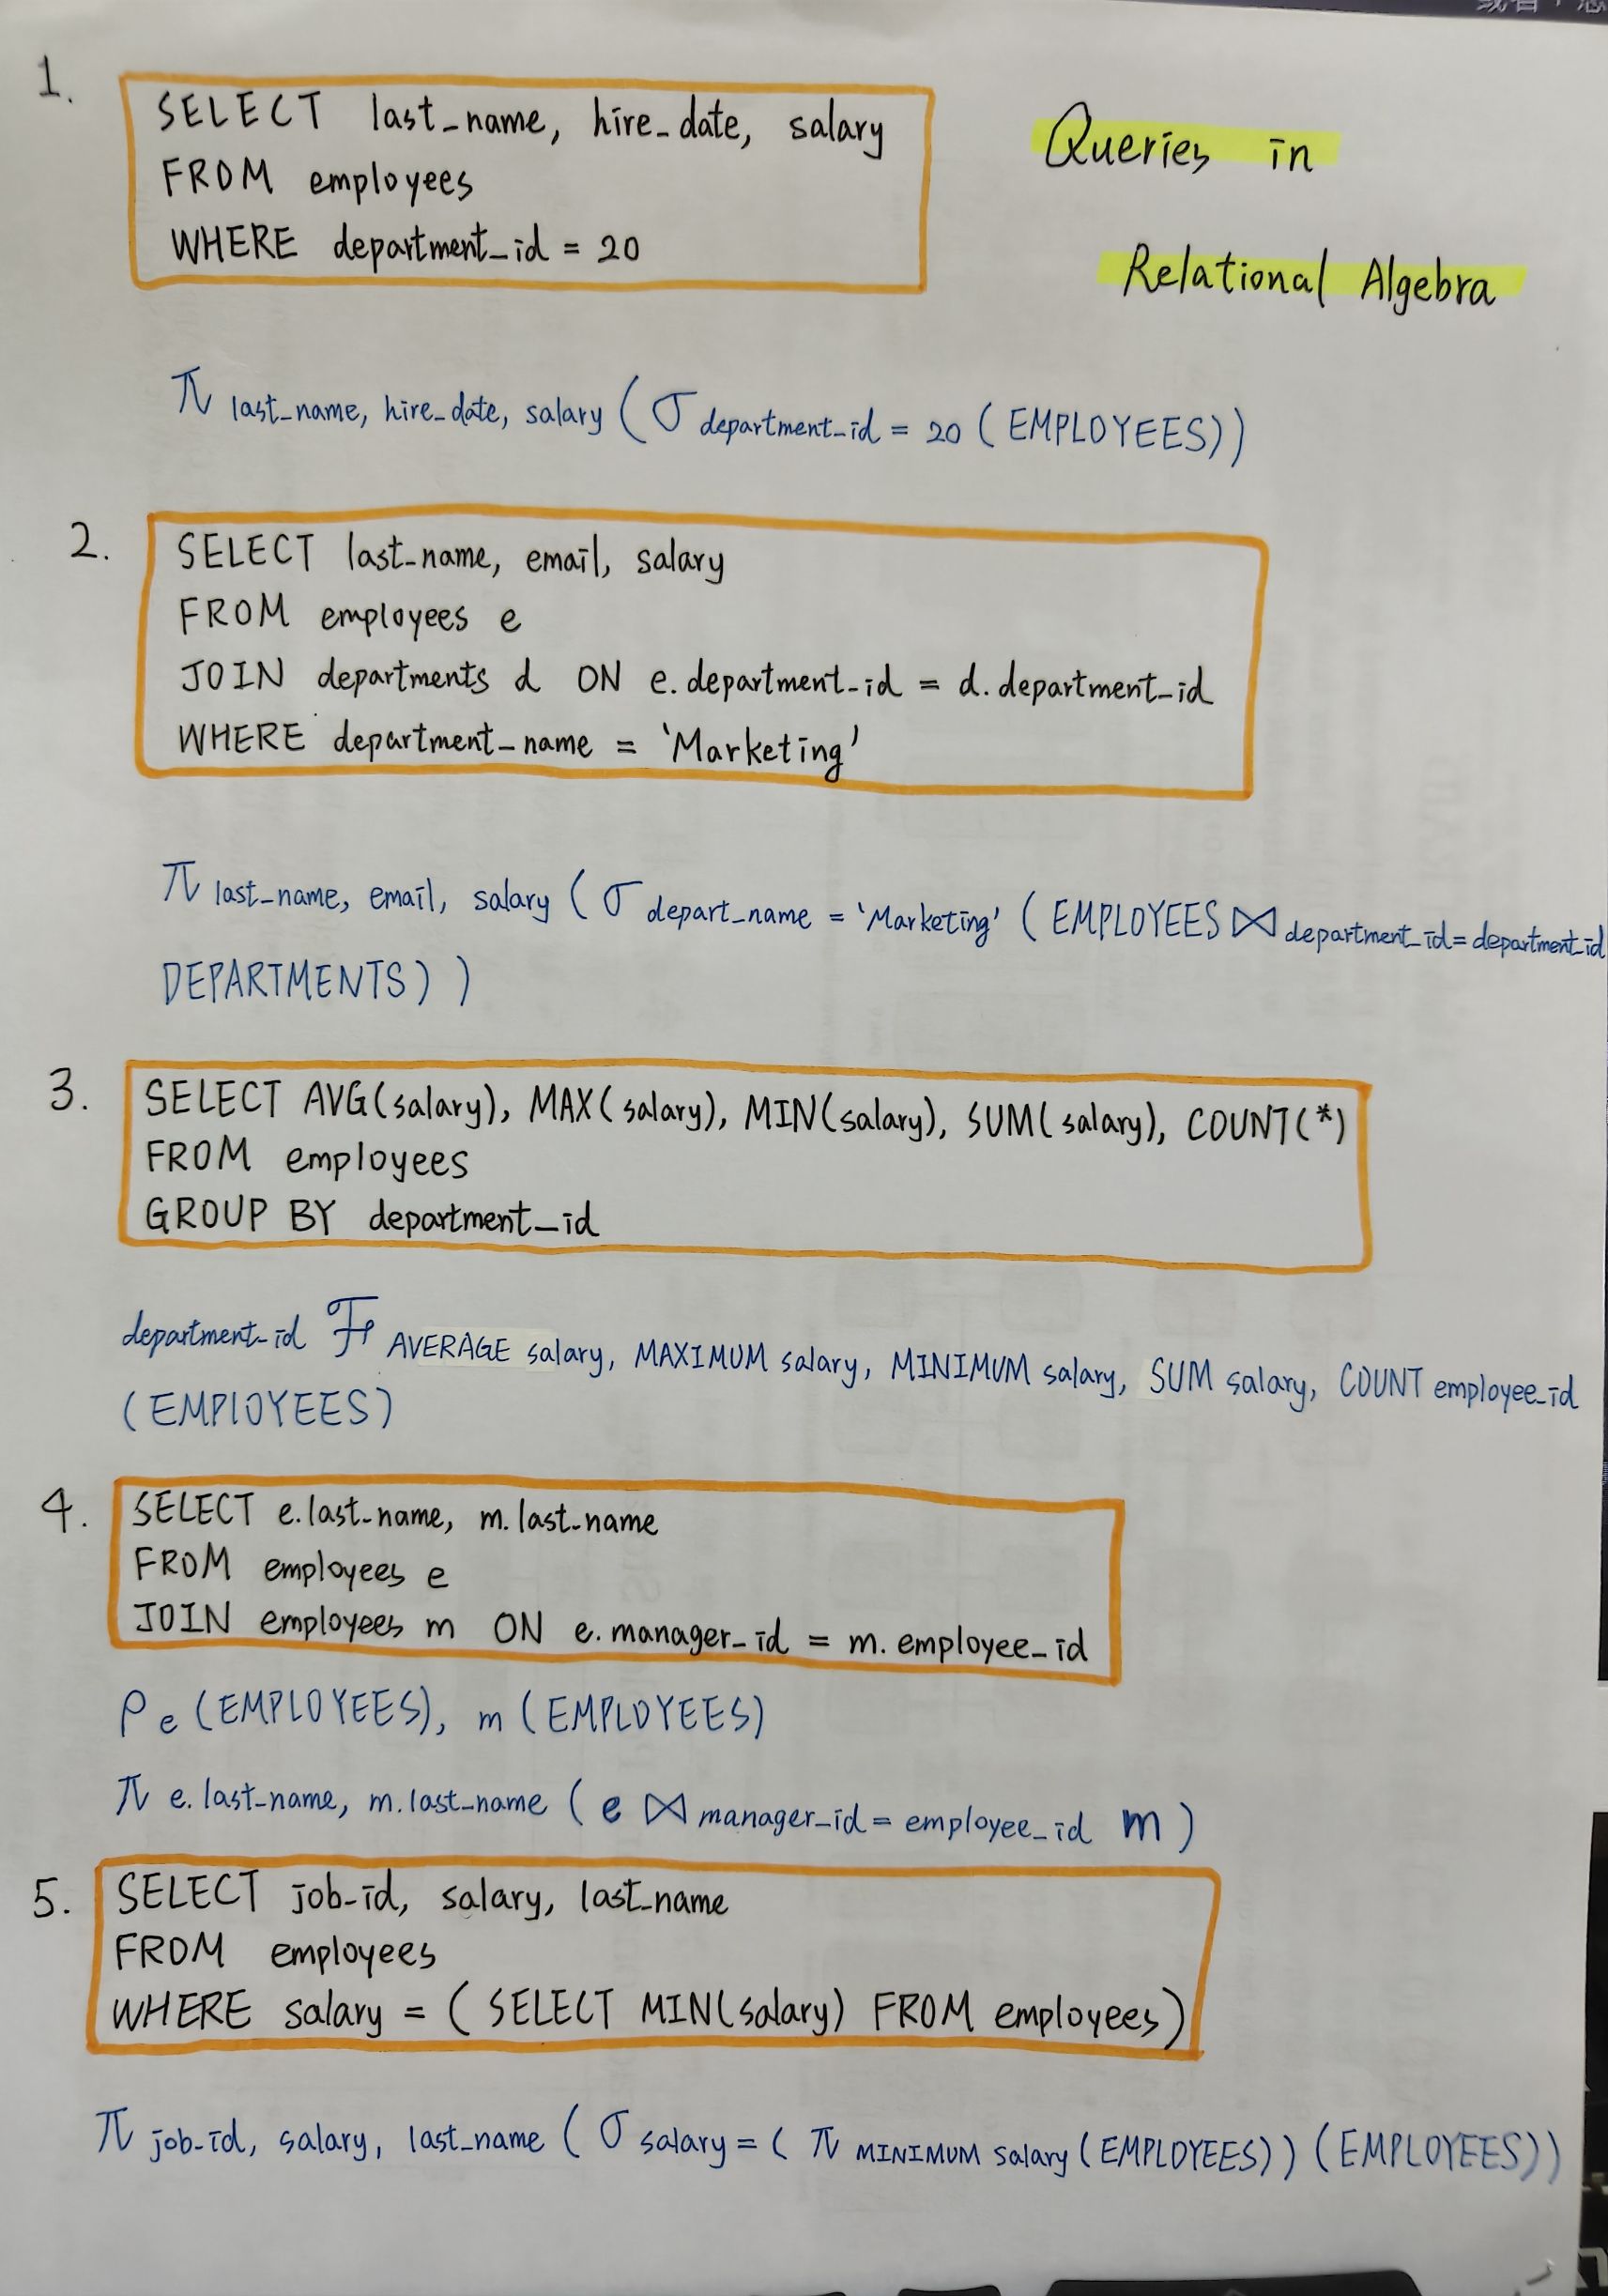 1.
SELECT last_name, hire_date, salary
FROM employees
WHERE department_id = 20
Queries in
Relational Algebra
π last_name, hire_date, salary (σ department_id = 20 (EMPLOYEES))
2.
SELECT last_name, email, salary
FROM employees e
JOIN departments d ON e.department_id = d.department_id
WHERE department_name = 'Marketing'
π last_name, email, salary (σ depart_name = 'Marketing' (EMPLOYEES ⋈ department_id = department_id
DEPARTMENTS))
3.
SELECT AVG(salary), MAX(salary), MIN(salary), SUM(salary), COUNT(*)
FROM employees
GROUP BY department_id
department_id ℱ AVERAGE salary, MAXIMUM salary, MINIMUM salary, SUM salary, COUNT employee_id
(EMPLOYEES)
4.
SELECT e.last_name, m.last_name
FROM employees e
JOIN employees m ON e.manager_id = m.employee_id
ρ e (EMPLOYEES), m (EMPLOYEES)
π e.last_name, m.last_name (e ⋈ manager_id = employee_id m)
5.
SELECT job_id, salary, last_name
FROM employees
WHERE salary = (SELECT MIN(salary) FROM employees)
π job_id, salary, last_name (σ salary = (π MINIMUM salary (EMPLOYEES)) (EMPLOYEES))